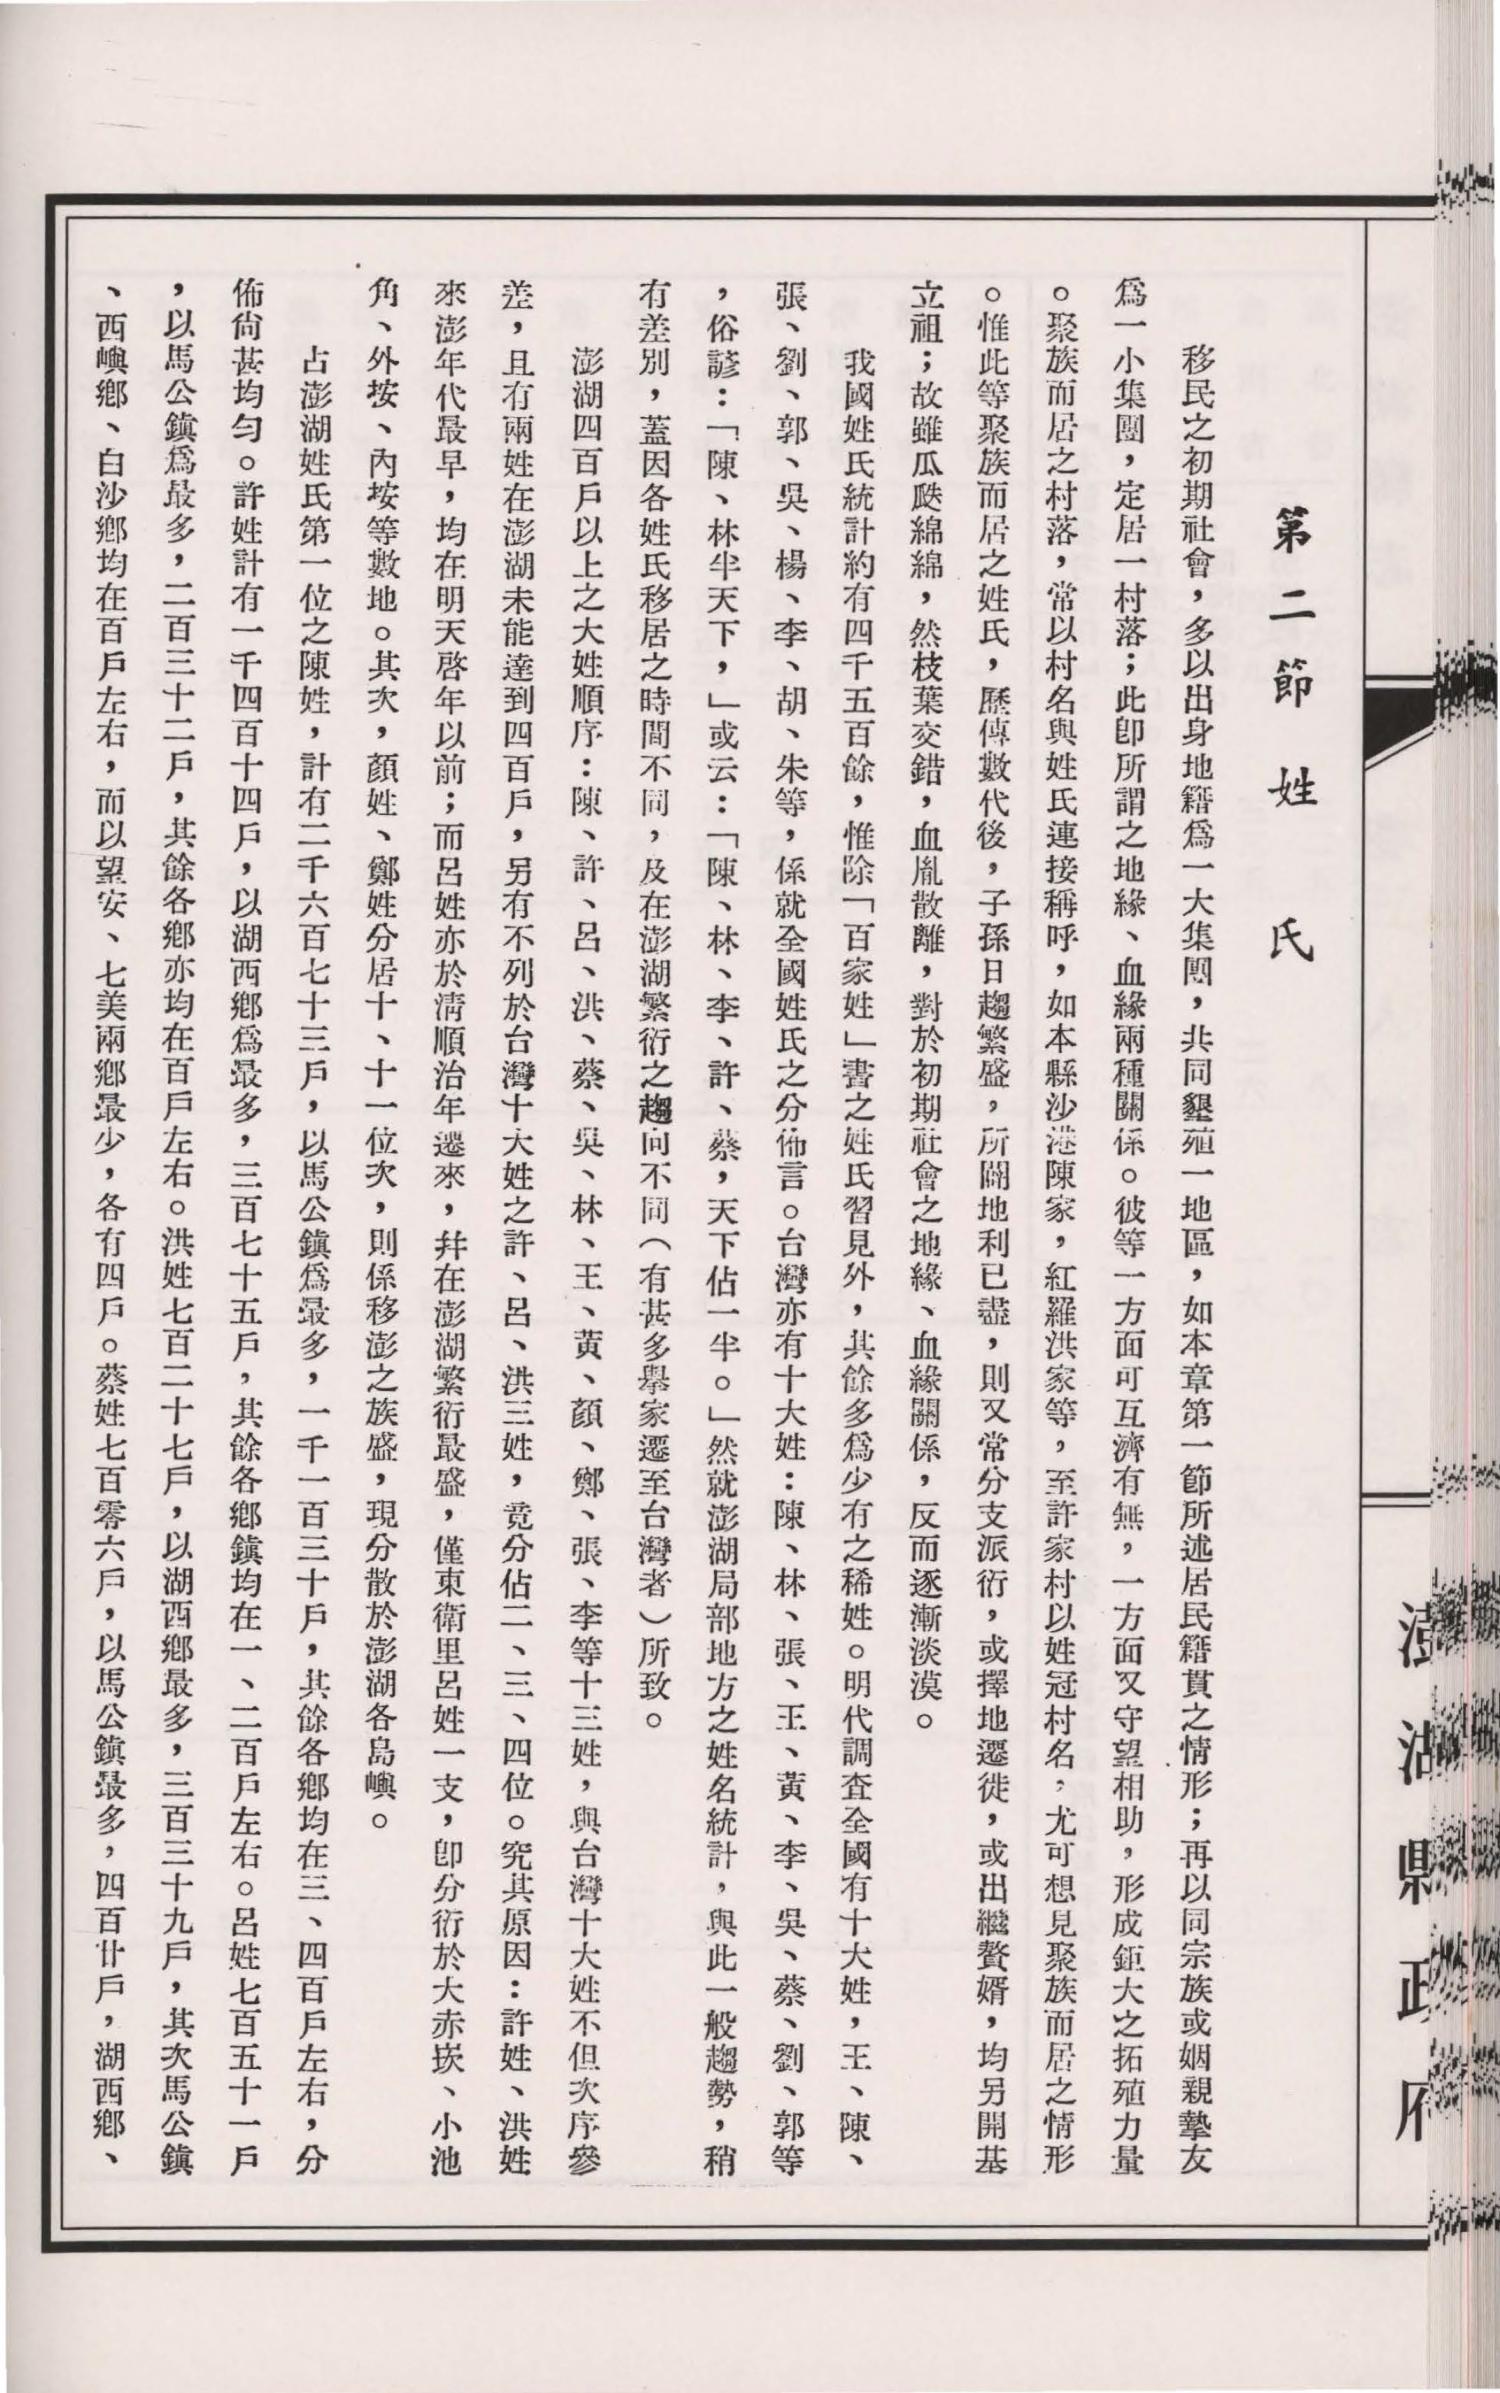 澎湖縣政府
第二節 姓氏
移民之初期社會，多以出身地籍爲一大集團，共同墾殖一地區，如本章第一節所述居民籍貫之情形；再以同宗族或姻親摯友
爲一小集團，定居一村落；此卽所謂之地緣、血緣兩種關係。彼等一方面可互濟有無，一方面又守望相助，形成鉅大之拓殖力量
。聚族而居之村落，常以村名與姓氏連接稱呼，如本縣沙港陳家，紅羅洪家等，至許家村以姓冠村名，尤可想見聚族而居之情形
。惟此等聚族而居之姓氏，歷傳數代後，子孫日趨繁盛，所闢地利已盡，則又常分支派衍，或擇地遷徙，或出繼贅婿，均另開基
立祖；故雖瓜瓞綿綿，然枝葉交錯，血胤散離，對於初期社會之地緣、血緣關係，反而逐漸淡漠。
我國姓氏統計約有四千五百餘，惟除「百家姓」書之姓氏習見外，其餘多爲少有之稀姓。明代調査全國有十大姓，王、陳、
張、劉、郭、吳、楊、李、胡、朱等，係就全國姓氏之分佈言。台灣亦有十大姓：陳、林、張、王、黃、李、吳、蔡、劉、郭等
，俗諺：「陳、林半天下，」或云：「陳、林、李、許、蔡，天下佔一半。」然就澎湖局部地方之姓名統計，與此一般趨勢，稍
有差別，蓋因各姓氏移居之時間不同，及在澎湖繁衍之趨向不同（有甚多舉家遷至台灣者）所致。
澎湖四百戶以上之大姓順序：陳、許、呂、洪、蔡、吳、林、王、黃、顏、鄭、張、李等十三姓，與台灣十大姓不但次序參
差，且有兩姓在澎湖未能達到四百戶，另有不列於台灣十大姓之許、呂、洪三姓，竟分佔二、三、四位。究其原因：許姓、洪姓
來澎年代最早，均在明天啓年以前；而呂姓亦於清順治年遷來，幷在澎湖繁衍最盛，僅東衛里呂姓一支，卽分衍於大赤崁、小池
角、外垵、內垵等數地。其次，顏姓、鄭姓分居十、十一位次，則係移澎之族盛，現分散於澎湖各島嶼。
占澎湖姓氏第一位之陳姓，計有二千六百七十三戶，以馬公鎭爲最多，一千一百三十戶，其餘各鄉均在三、四百戶左右，分
佈尙甚均勻。許姓計有一千四百十四戶，以湖西鄉爲最多，三百七十五戶，其餘各鄉鎭均在一、二百戶左右。呂姓七百五十一戶
，以馬公鎭爲最多，二百三十二戶，其餘各鄉亦均在百戶左右。洪姓七百二十七戶，以湖西鄉最多，三百三十九戶，其次馬公鎭
、西嶼鄉、白沙鄉均在百戶左右，而以望安、七美兩鄉最少，各有四戶。蔡姓七百零六戶，以馬公鎭最多，四百廿戶，湖西鄉、